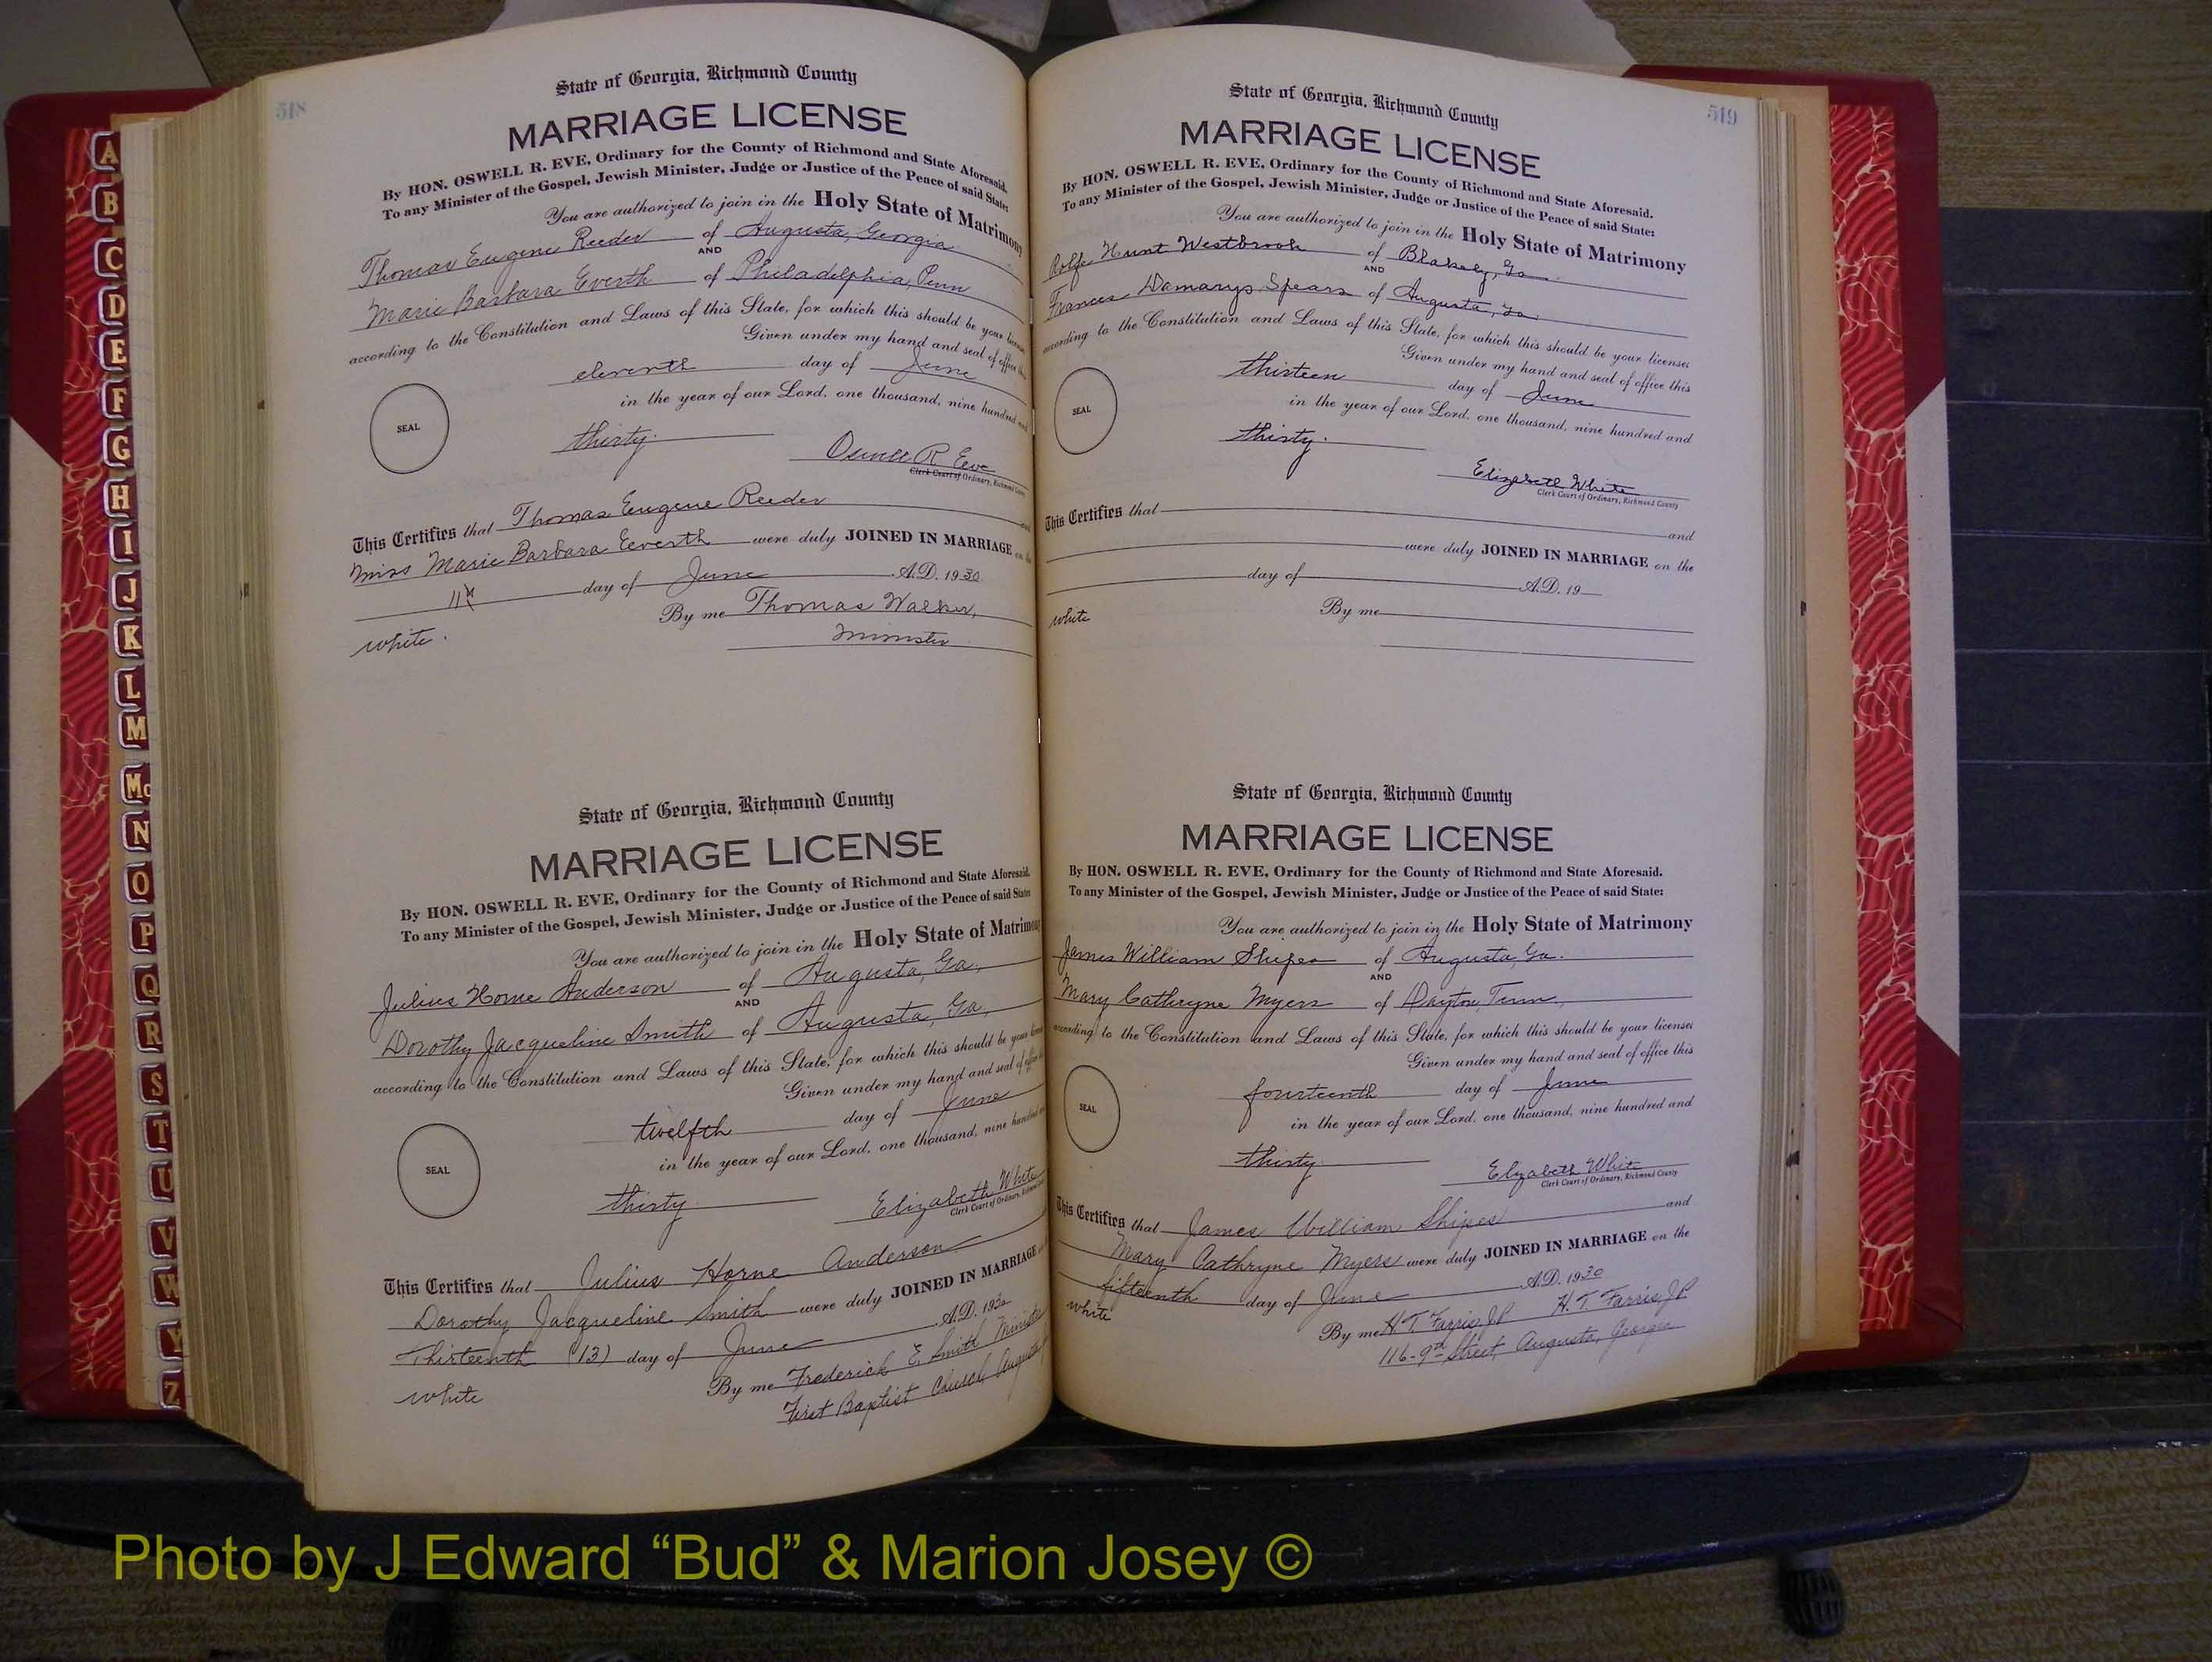 A
B
C
D
E
F
G
H
I
J
K
L
M
Mc
N
O
P
Q
R
S
T
U
V
W
Y
Z
518
State of Georgia, Richmond County
MARRIAGE LICENSE
By HON. OSWELL R. EVE, Ordinary for the County of Richmond and State Aforesaid.
To any Minister of the Gospel, Jewish Minister, Judge or Justice of the Peace of said State:
You are authorized to join in the Holy State of Matrimony
Thomas Eugene Reeder of Augusta, Georgia
AND
Marie Barbara Everth of Philadelphia, Penn
according to the Constitution and Laws of this State, for which this should be your license
Given under my hand and seal of office this
eleventh day of June
in the year of our Lord, one thousand, nine hundred and
SEAL
thirty.
Oswell R Eve
Clerk Court of Ordinary, Richmond County
This Certifies that Thomas Eugene Reeder and
Miss Marie Barbara Everth were duly JOINED IN MARRIAGE on the
11th day of June A.D. 1930
By me Thomas Walker,
Minister
white.
State of Georgia, Richmond County
MARRIAGE LICENSE
By HON. OSWELL R. EVE, Ordinary for the County of Richmond and State Aforesaid.
To any Minister of the Gospel, Jewish Minister, Judge or Justice of the Peace of said State:
You are authorized to join in the Holy State of Matrimony
Julius Horne Anderson of Augusta, Ga.,
AND
Dorothy Jacqueline Smith of Augusta, Ga,
according to the Constitution and Laws of this State, for which this should be your license
Given under my hand and seal of office
twelfth day of June
in the year of our Lord, one thousand, nine hundred and
SEAL
thirty.
Elizabeth White
Clerk Court of Ordinary, Richmond County
This Certifies that Julius Horne Anderson
Dorothy Jacqueline Smith were duly JOINED IN MARRIAGE
Thirteenth (13) day of June A.D. 1930
By me Frederick E. Smith Minister
First Baptist Church Augusta
white
519
State of Georgia, Richmond County
MARRIAGE LICENSE
By HON. OSWELL R. EVE, Ordinary for the County of Richmond and State Aforesaid.
To any Minister of the Gospel, Jewish Minister, Judge or Justice of the Peace of said State:
You are authorized to join in the Holy State of Matrimony
Rolfe Hunt Westbrook of Blakely, Ga.
AND
Frances Damarys Spears of Augusta, Ga.
according to the Constitution and Laws of this State, for which this should be your license
Given under my hand and seal of office this
thirteen day of June
in the year of our Lord, one thousand, nine hundred and
SEAL
thirty.
Elizabeth White
Clerk Court of Ordinary, Richmond County
This Certifies that and
were duly JOINED IN MARRIAGE on the
day of A.D. 19
By me
white
State of Georgia, Richmond County
MARRIAGE LICENSE
By HON. OSWELL R. EVE, Ordinary for the County of Richmond and State Aforesaid.
To any Minister of the Gospel, Jewish Minister, Judge or Justice of the Peace of said State:
You are authorized to join in the Holy State of Matrimony
James William Shipes of Augusta, Ga.
AND
Mary Cathryne Myers of Dayton, Tenn,
according to the Constitution and Laws of this State, for which this should be your license
Given under my hand and seal of office this
fourteenth day of June
in the year of our Lord, one thousand, nine hundred and
SEAL
thirty
Elizabeth White
Clerk Court of Ordinary, Richmond County
This Certifies that James William Shipes and
Mary Cathryne Myers were duly JOINED IN MARRIAGE on the
fifteenth day of June A.D. 1930
By me H T Farris JP H. T. Farris, JP
116-9th Street, Augusta, Georgia
white
Photo by J Edward “Bud” & Marion Josey ©